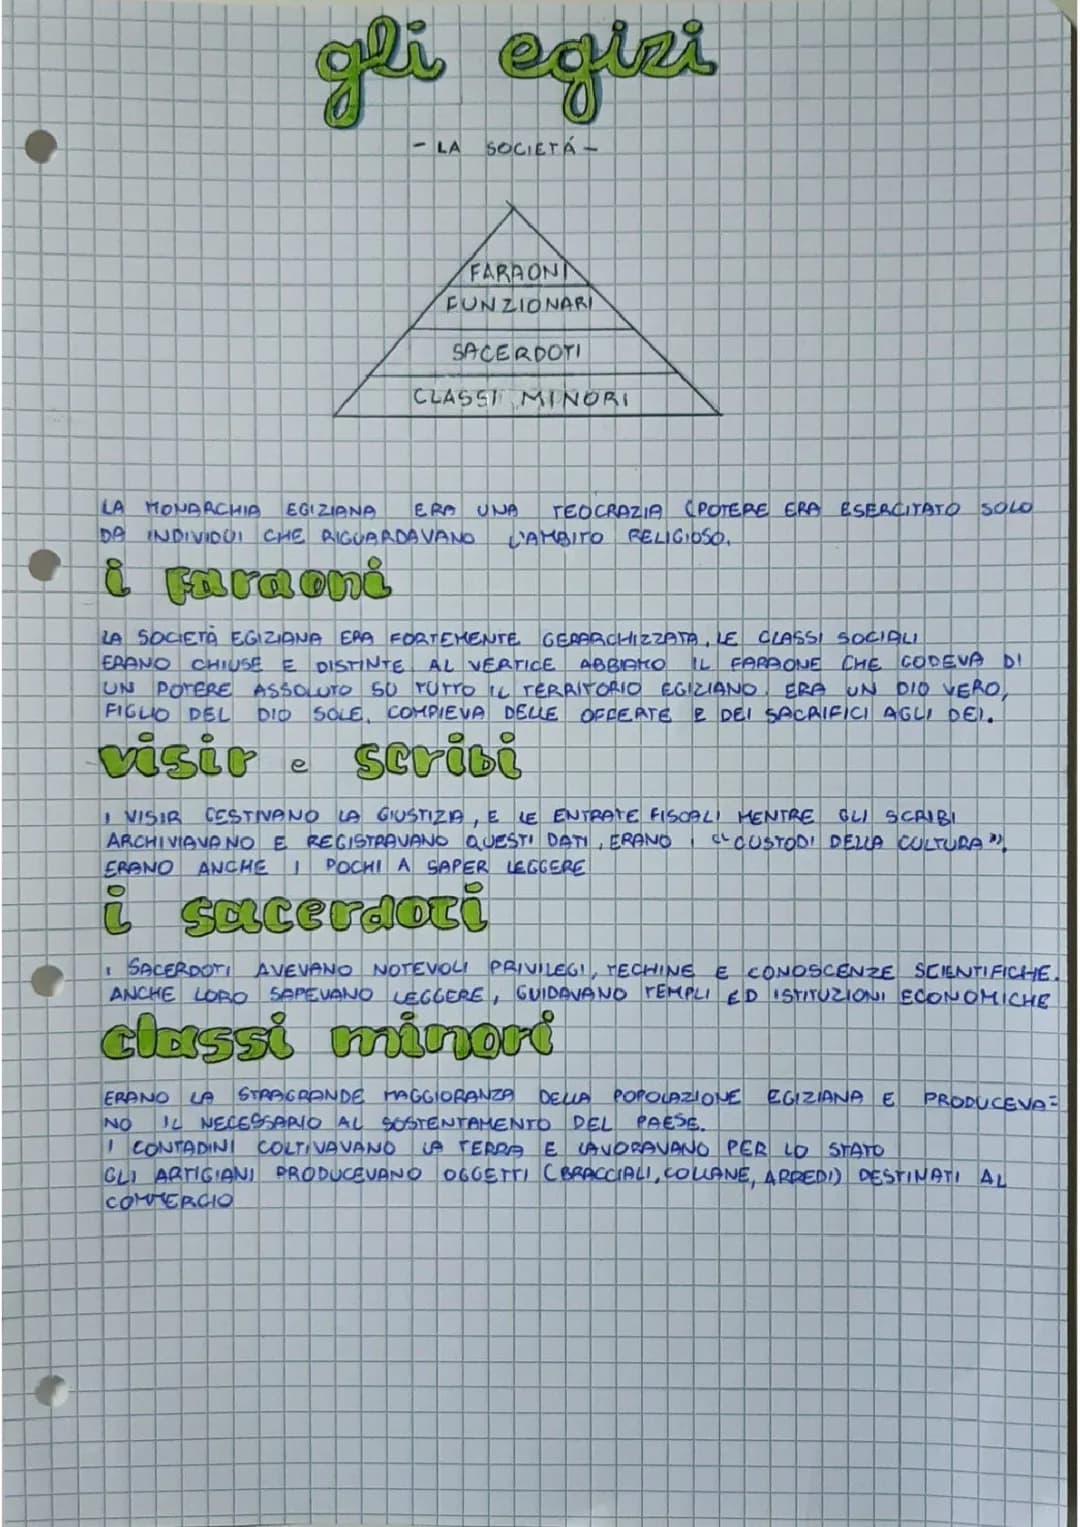 gli egizi
- LA SOCIETÁ -
FARAONI
FUNZIONARI
SACERDOTI
CLASSI MINORI
LA MONARCHIA EGIZIANA ERA UNA TEOCRAZIA (POTERE ERA ESERCITATO SOLO
DA INDIVIDUI CHE RIGUARDAVANO L'AMBITO RELIGIOSO.
i faraoni
LA SOCIETÀ EGIZIANA ERA FORTEMENTE GERARCHIZZATA, LE CLASSI SOCIALI
ERANO CHIUSE E DISTINTE. AL VERTICE ABBIAMO IL FARAONE CHE GODEVA DI
UN POTERE ASSOLUTO SU TUTTO IL TERRITORIO EGIZIANO. ERA UN DIO VERO,
FIGLIO DEL DIO SOLE. COMPIEVA DELLE OFFERTE E DEI SACRIFICI AGLI DEI.
visir e scribi
I VISIR GESTIVANO LA GIUSTIZIA, E LE ENTRATE FISCALI MENTRE GLI SCRIBI
ARCHIVIAVANO E REGISTRAVANO QUESTI DATI, ERANO I "CUSTODI DELLA CULTURA",
ERANO ANCHE I POCHI A SAPER LEGGERE
i sacerdoti
I SACERDOTI AVEVANO NOTEVOLI PRIVILEGI, TECHINE E CONOSCENZE SCIENTIFICHE.
ANCHE LORO SAPEVANO LEGGERE, GUIDAVANO TEMPLI ED ISTITUZIONI ECONOMICHE
classi minori
ERANO LA STRAGRANDE MAGGIORANZA DELLA POPOLAZIONE EGIZIANA E PRODUCEVA=
NO IL NECESSARIO AL SOSTENTAMENTO DEL PAESE.
I CONTADINI COLTIVAVANO LA TERRA E LAVORAVANO PER LO STATO
GLI ARTIGIANI PRODUCEVANO OGGETTI (BRACCIALI, COLLANE, ARREDI) DESTINATI AL
COMMERCIO